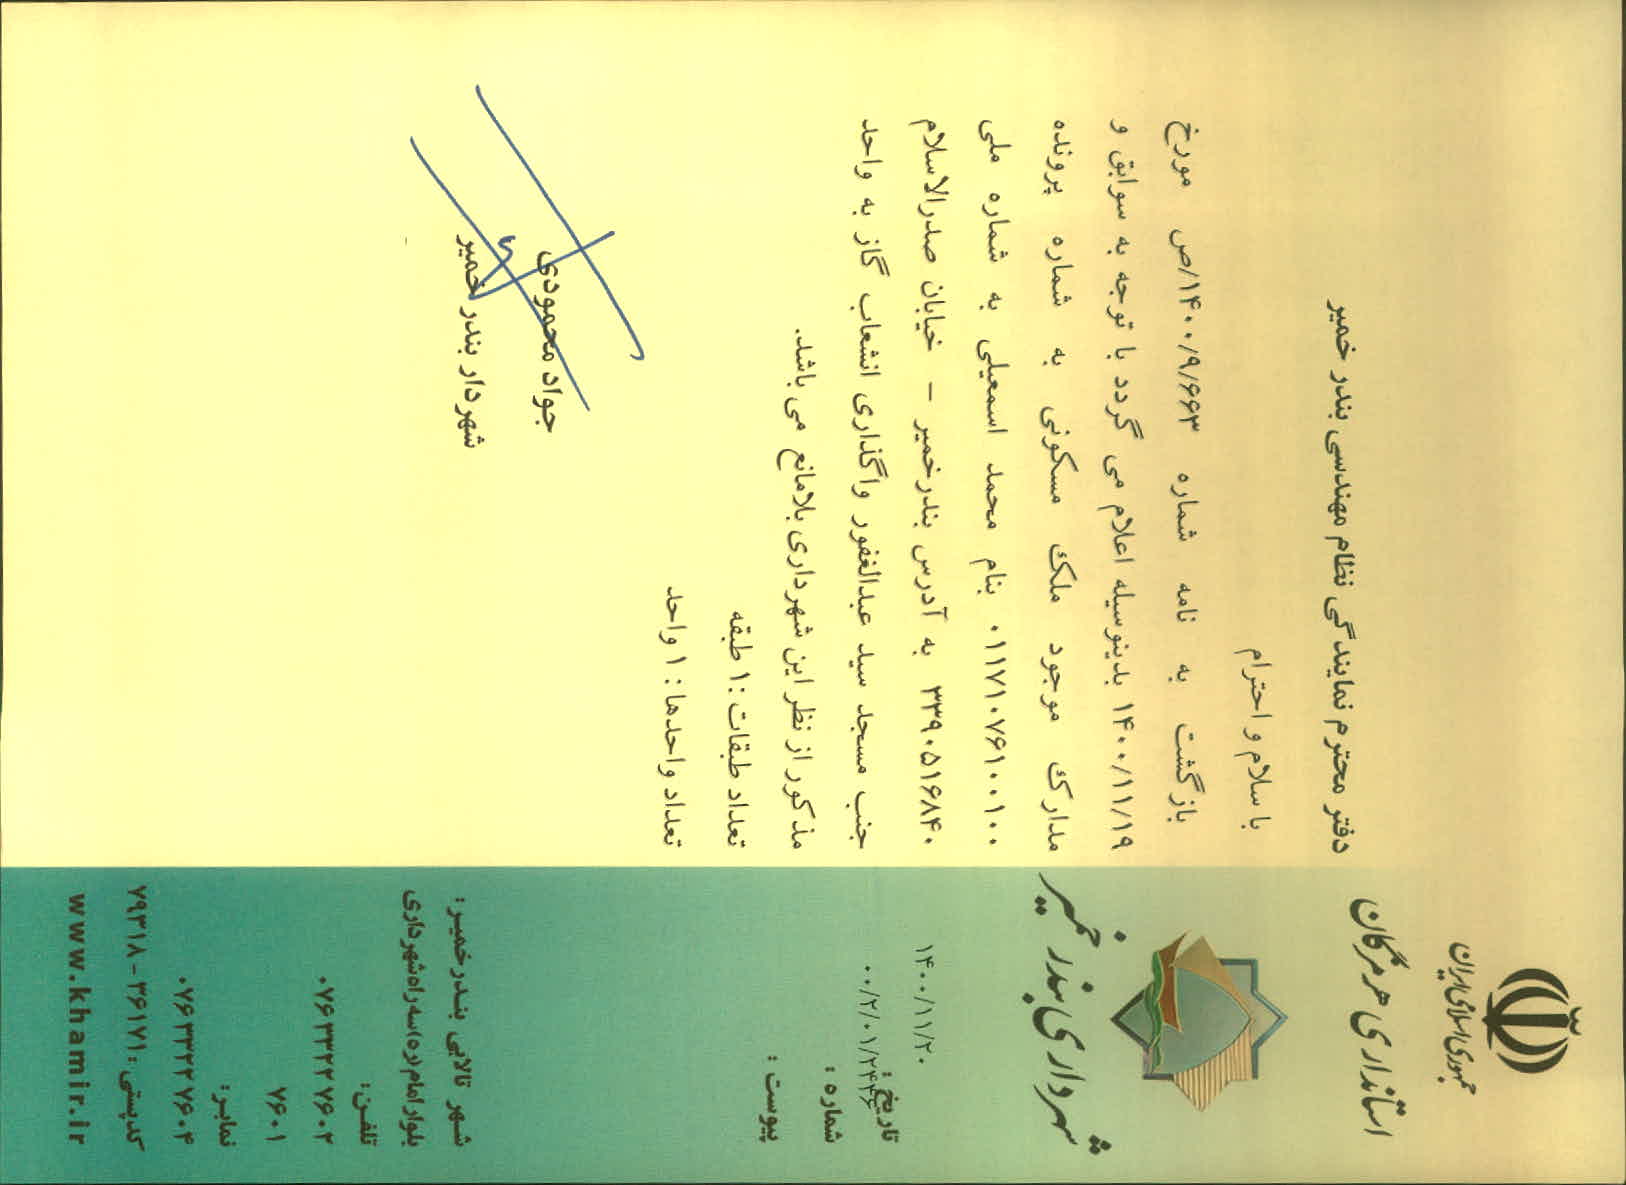 جمهوری اسلامی ایران
استانداری هرمزگان
شهرداری بندر خمیر
۱۴۰۰/۱۱/۲۰
تاریخ :
۰۰/۲/۰۱/۲۴۴۶
شماره :
پیوست :
شهر تالابی بندرخمیر:
بلوار امام(ره)سه راه شهرداری
تلفن:
۰۷۶۳۳۲۲۷۶۰۲
۷۶۰۱
نمابر:
۰۷۶۳۳۲۲۷۶۰۴
کدپستی: ۳۶۱۷۱-۷۹۳۱۸
www.khamir.ir
دفتر محترم نمایندگی نظام مهندسی بندر خمیر
با سلام و احترام
بازگشت به نامه شماره ۱۴۰۰/۹/۶۶۳/ص مورخ
۱۴۰۰/۱۱/۱۹ بدینوسیله اعلام می گردد با توجه به سوابق و
مدارک موجود ملک مسکونی به شماره پرونده
۰۱۱۷۱۰۷۶۱۰۰۱۰۰ بنام محمد اسمعیلی به شماره ملی
۳۳۹۰۵۱۶۸۴۰ به آدرس بندرخمیر – خیابان صدرالاسلام
جنب مسجد سید عبدالغفور واگذاری انشعاب گاز به واحد
مذکور از نظر این شهرداری بلامانع می باشد.
تعداد طبقات :۱ طبقه
تعداد واحدها : ۱ واحد
جواد محمودی
شهردار بندر خمیر